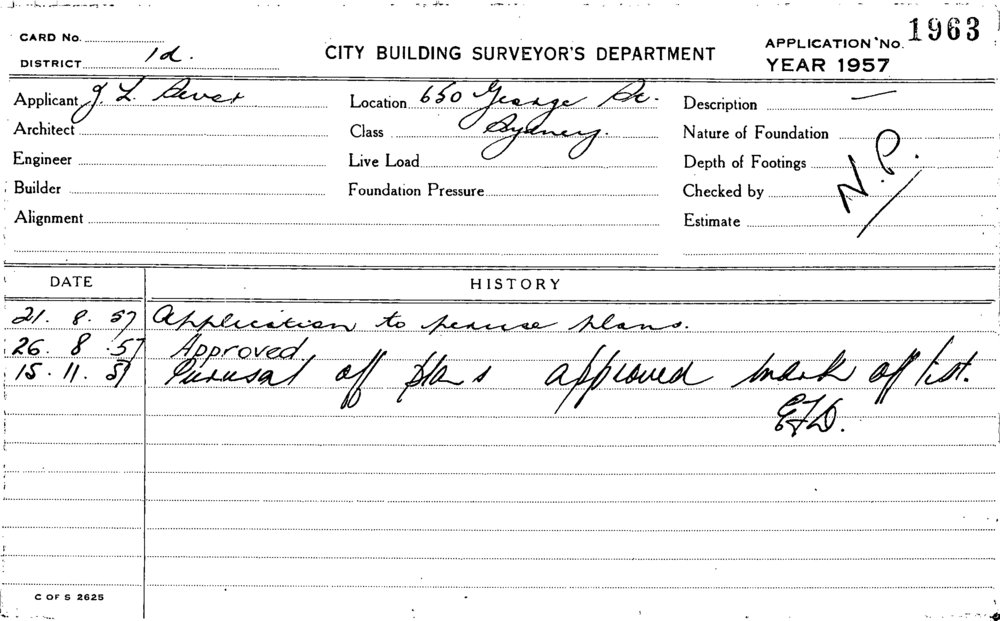 CARD No.
DISTRICT 1d.
CITY BUILDING SURVEYOR'S DEPARTMENT
APPLICATION No. 1963
YEAR 1957
Applicant J. L.
Architect
Engineer
Builder
Alignment
Location 650 George St.
Sydney.
Class
Live Load
Foundation Pressure
Description —
Nature of Foundation
Depth of Footings
Checked by
Estimate
N.P.
DATE HISTORY
21. 8. 57 Application to peruse plans.
26. 8. 57 Approved
15. 11. 57 Purusal off plans approved mark off list.
EFD.
C OF S 2625